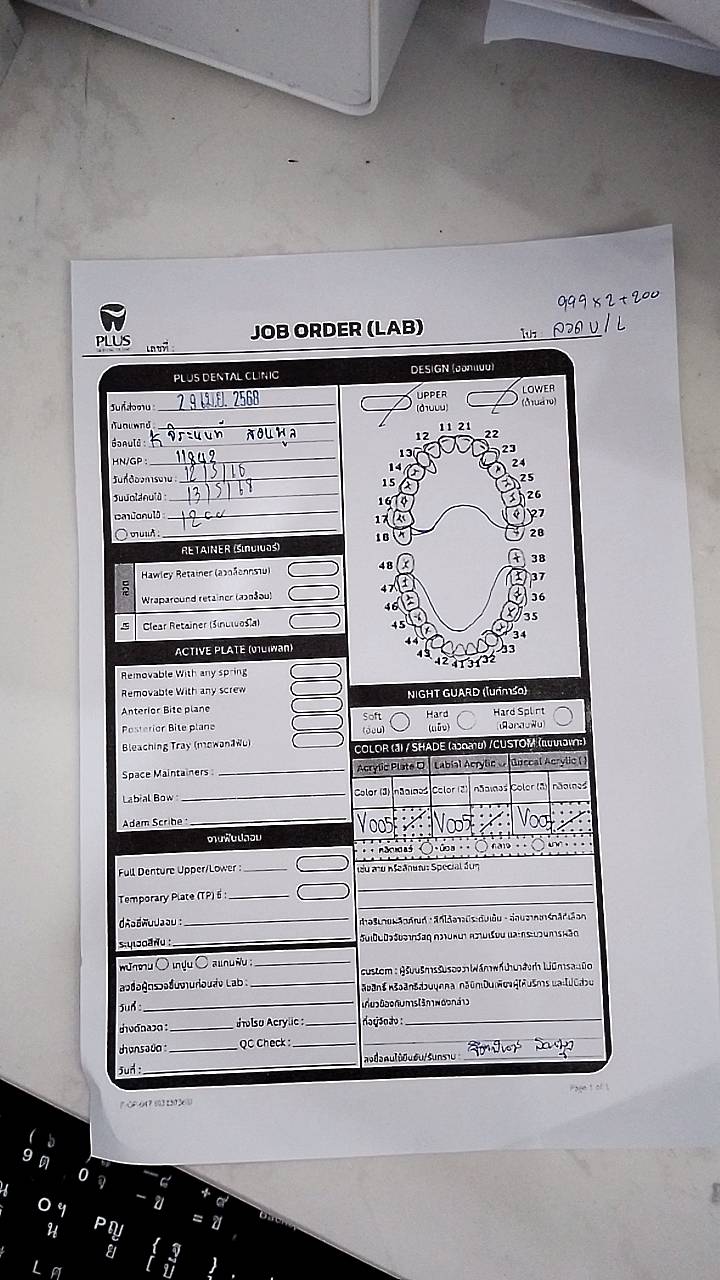 999 x 2 + 200
PLUS
เลขที่ :
JOB ORDER (LAB)
โปร : ลวด U/L
PLUS DENTAL CLINIC
วันที่ส่งงาน : 29 เม.ย. 2568
ทันตแพทย์ :
ชื่อคนไข้ : K จิระนนท์
HN/GP : 11842
วันที่ต้องการงาน : 12/5/68
วันนัดใส่คนไข้ : 13/5/68
เวลานัดคนไข้ : 1200
งานแก้ :
RETAINER (รีเทนเนอร์)
ลวด
Hawley Retainer (ลวดล็อกกราม)
Wraparound retainer (ลวดอ้อม)
ใส
Clear Retainer (รีเทนเนอร์ใส)
ACTIVE PLATE (งานเพลท)
Removable With any spring
Removable With any screw
Anterior Bite plane
Posterior Bite plane
Bleaching Tray (ถาดฟอกสีฟัน)
Space Maintainers :
Labial Bow :
Adam Scribe :
งานฟันปลอม
Full Denture Upper/Lower :
Temporary Plate (TP) ซี่ :
ยี่ห้อซี่ฟันปลอม :
ระบุเฉดสีฟัน :
พนักงาน เทปูน สแกนฟัน :
ลงชื่อผู้ตรวจชิ้นงานก่อนส่ง Lab :
วันที่ :
ช่างดัดลวด : ช่างโรย Acrylic :
ช่างกรอขัด : QC Check :
วันที่ :
DESIGN (ออกแบบ)
UPPER (ด้านบน)
LOWER (ด้านล่าง)
11 21
12 22
13 23
14 24
15 25
16 26
17 27
18 28
48 38
47 37
46 36
45 35
44 34
43 33
42 41 31 32
NIGHT GUARD (ไนท์การ์ด)
Soft (อ่อน)
Hard (แข็ง)
Hard Splint (เฝือกสบฟัน)
COLOR (สี) / SHADE (ลวดลาย) /CUSTOM (แบบเฉพาะ)
Acrylic Plate Labial Acrylic Buccal Acrylic ( )
Color (สี) กลิตเตอร์ Color (สี) กลิตเตอร์ Color (สี) กลิตเตอร์
V005 V005 V005
กลิตเตอร์ น้อย กลาง มาก
เช่น ลาย หรือลักษณะ Special อื่นๆ
คำอธิบายผลิตภัณฑ์ : สีที่ได้อาจมีระดับเข้ม - อ่อนจากชาร์ทสีที่เลือก
อันเป็นปัจจัยจากวัสดุ ความหนา ความเรียบ และกระบวนการผลิต
custom : ผู้รับบริการรับรองว่าไฟล์ภาพที่นำมาสั่งทำ ไม่มีการละเมิด
ลิขสิทธิ์ หรือสิทธิส่วนบุคคล คลินิกเป็นเพียงผู้ให้บริการ และไม่มีส่วน
เกี่ยวข้องกับการใช้ภาพดังกล่าว
ที่อยู่จัดส่ง :
ลงชื่อคนไข้ยืนยัน/รับทราบ :
Page 1 of 1